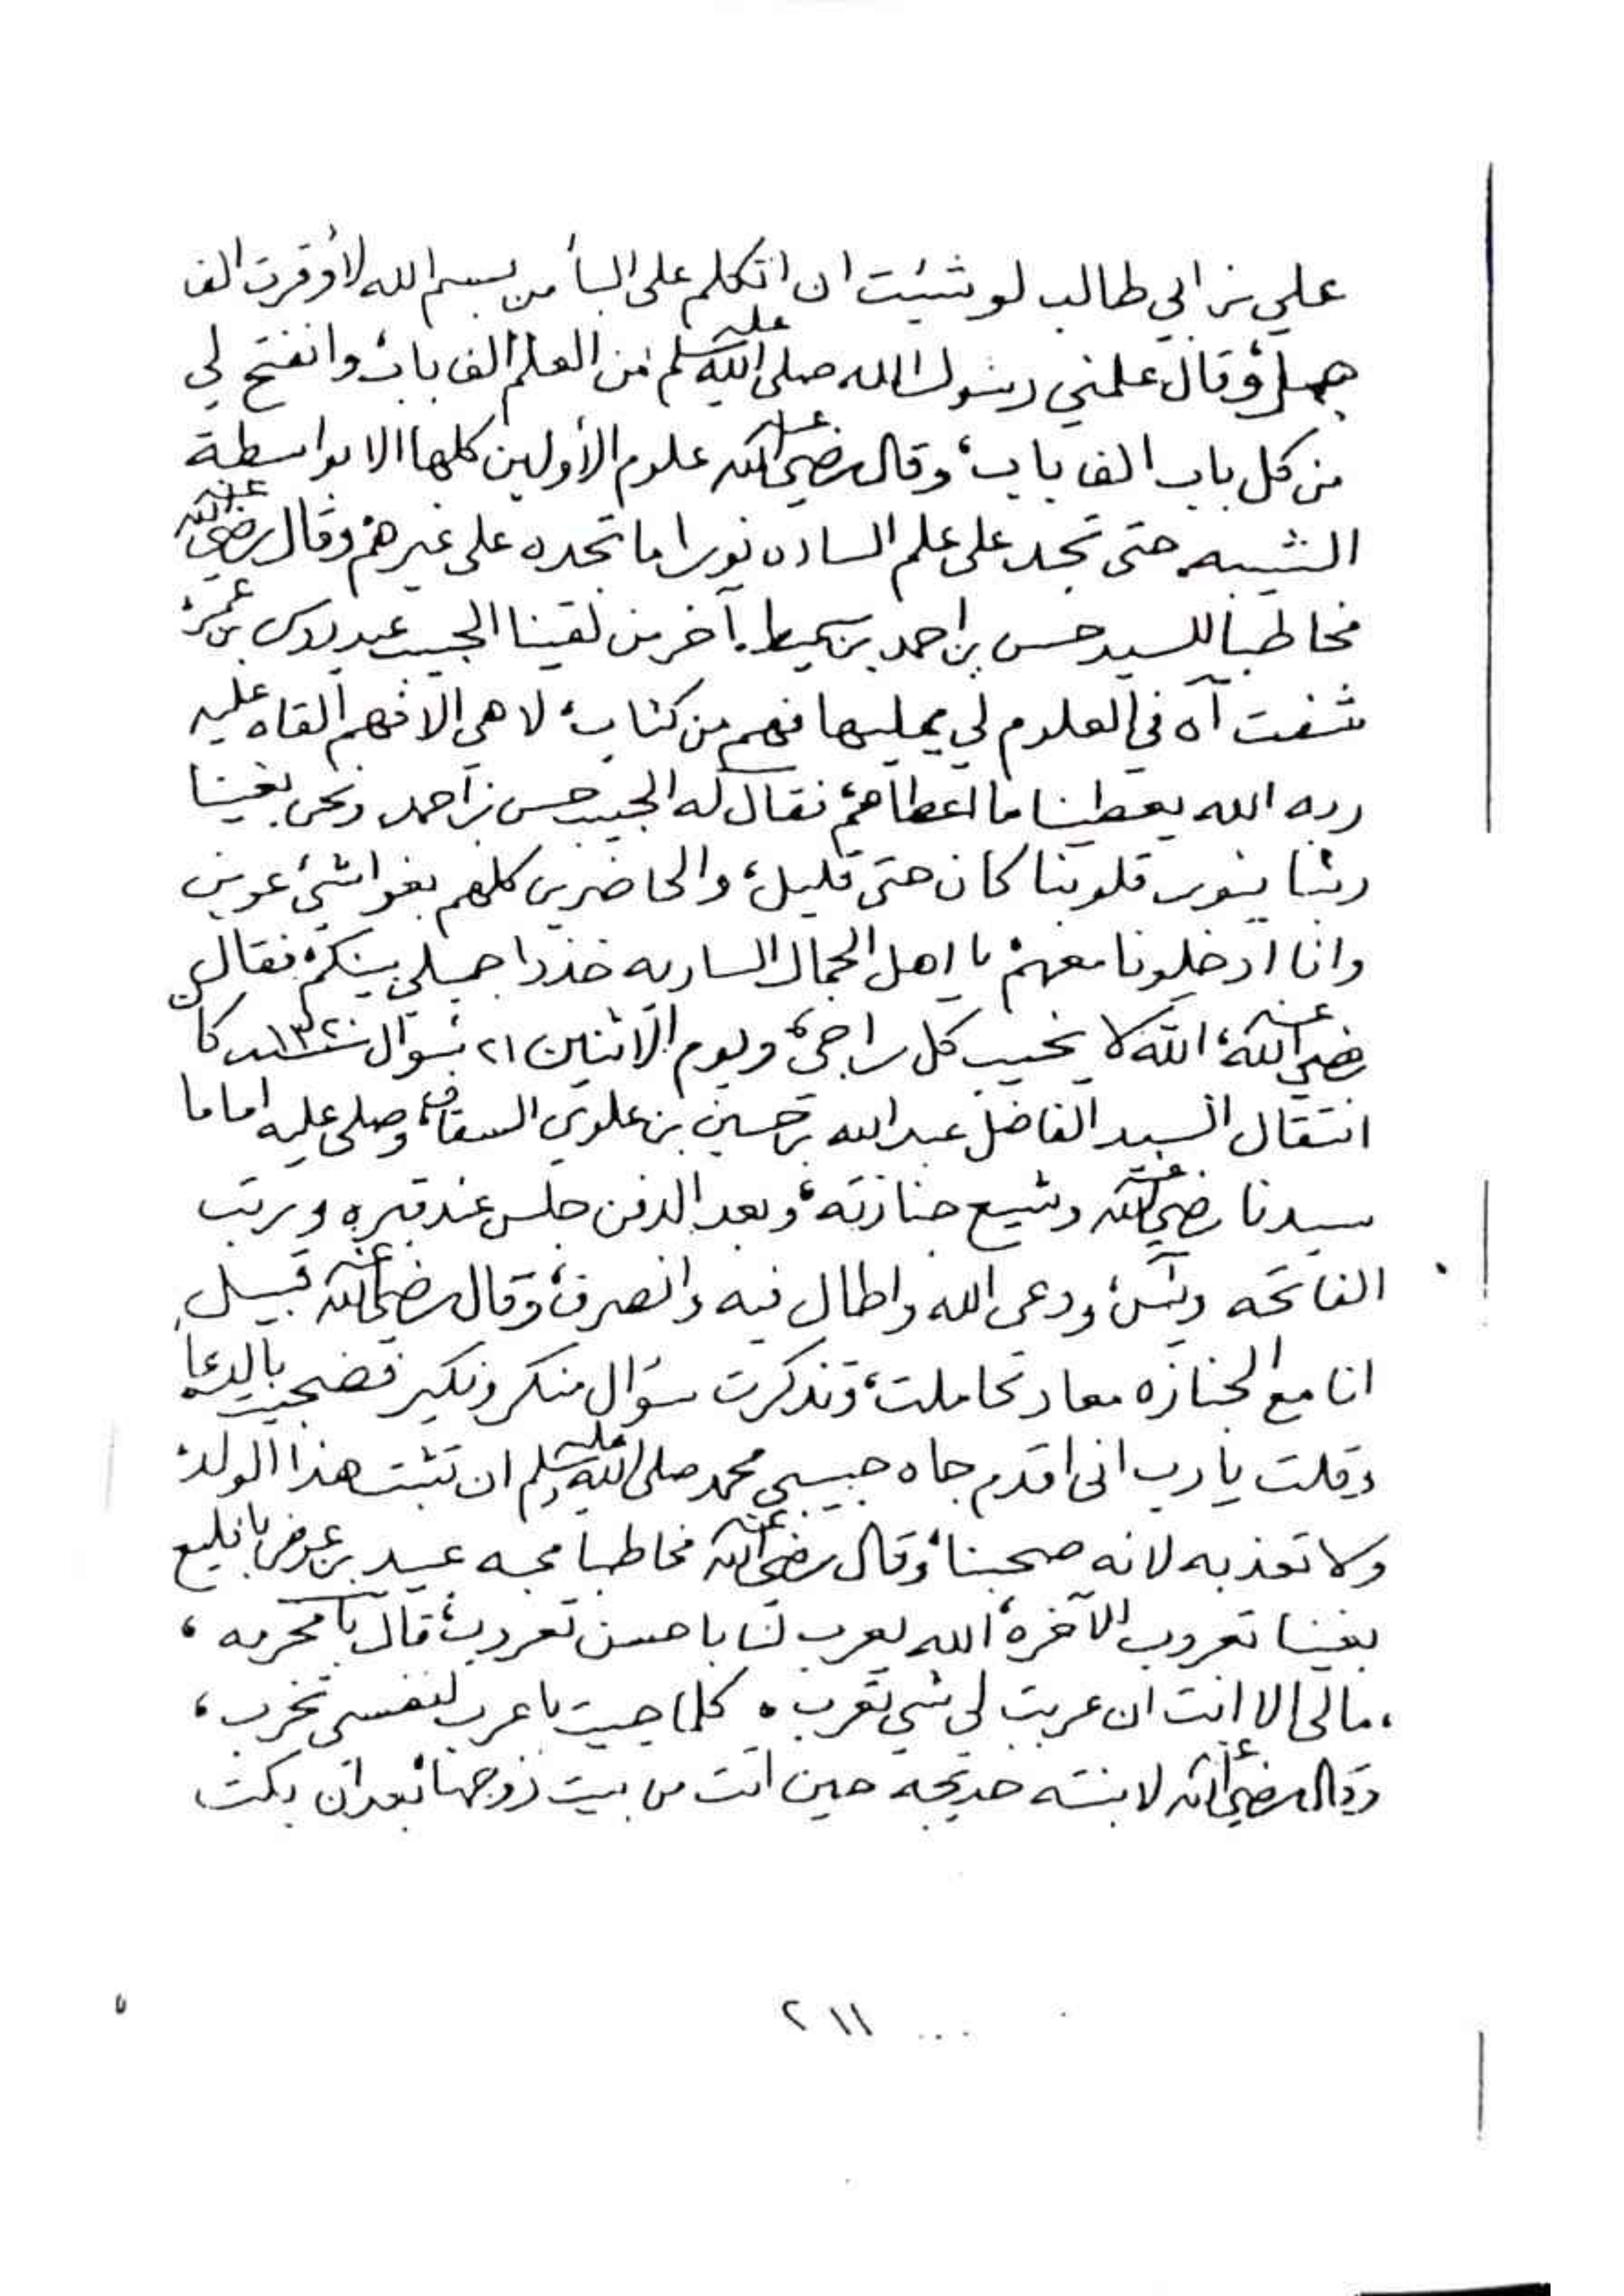 علي بن ابي طالب لو شئت ان اتكلم على البأ من بسم الله لأوقرت الف
جمل، وقال علمني رسول الله صلى الله عليه وسلم من العلم الف باب، وانفتح لي
من كل باب الف باب، وقال رضي الله عنه علوم الأولين كلها الا بواسطة
الشيبه حتى تجد على علم الساده نورا ما تجده على غيرهم، وقال رضي الله عنه
مخاطبا للسيد حسن بن احمد بن سميط. آخر من لقينا الحبيب عيدروس بن عمر،
شفت آه في العلوم لي يمليها فهم من كتاب، لا هي الا فهم القاه عليه
ربه الله يعطينا ما اعطاهم، فقال له الحبيب حسن بن احمد ونحن بغينا
ربنا ينور قلوبنا كان حتى قليل، والحاضرين كلهم بغوا شيء عوين
وانا ادخلونا معهم، يا اهل الجمال الساريه خذوا جملي بينكم، فقال
رضي الله عنه، الله لا يخيب كل راجي، ويوم الاثنين ٢١ شوال سنة ١٣٢٠ كان
انتقال السيد الفاضل عبدالله بن حسين بن علوي السقاف، وصلى عليه اماما
سيدنا رضي الله عنه وشيع جنازته، وبعد الدفن جلس عند قبره ورتب
الفاتحه ويس، ودعى الله واطال فيه وانصرف، وقال رضي الله عنه قبيل
انا مع الجنازه معاد تحاملت، وتذكرت سؤال منكر ونكير فضجيت بالدعاء
وقلت يا رب انى اقدم جاه حبيبي محمد صلى الله عليه وسلم ان تثبت هذا الولد،
ولا تعذبه لانه صحبنا، وقال رضي الله عنه مخاطبا محبه عبيد بن عوض بافليع
بغينا تعروب الآخره، الله يعرب لنا باحسن تعروب، قال بامخرمه،
، مالى الا انت ان عربت لي شي تعرب. كلما جيت باعرب لنفسى تخرب،
وقال رضي الله عنه لابنته خديجه حين اتت من بيت زوجها بعد ان بكت
٢١١